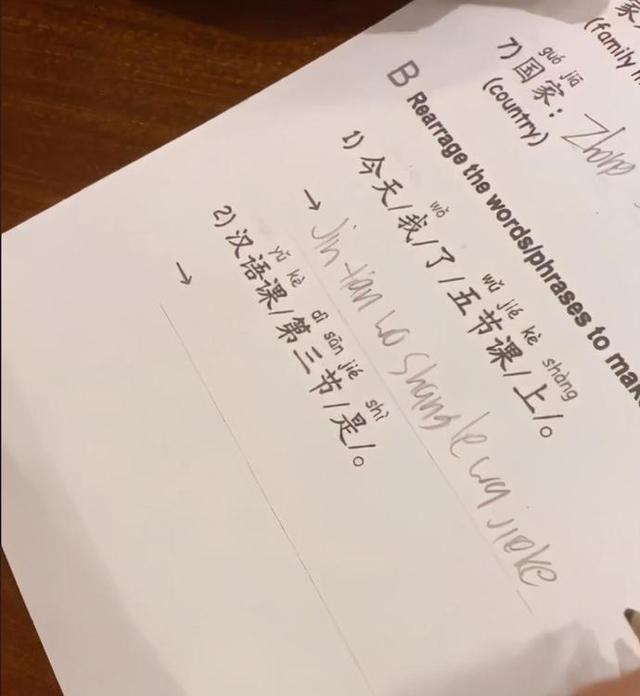 家
(family
guó jiā
7) 国家: Zhong
(country)
B Rearrage the words/phrases to mak
wǒ wǔ jié kè shàng
1) 今天/我/了/五节课/上/。
→ Jin tian wo shang le wu jie ke
yǔ kè dì sān jié shì
2) 汉语课/第三节/是/。
→